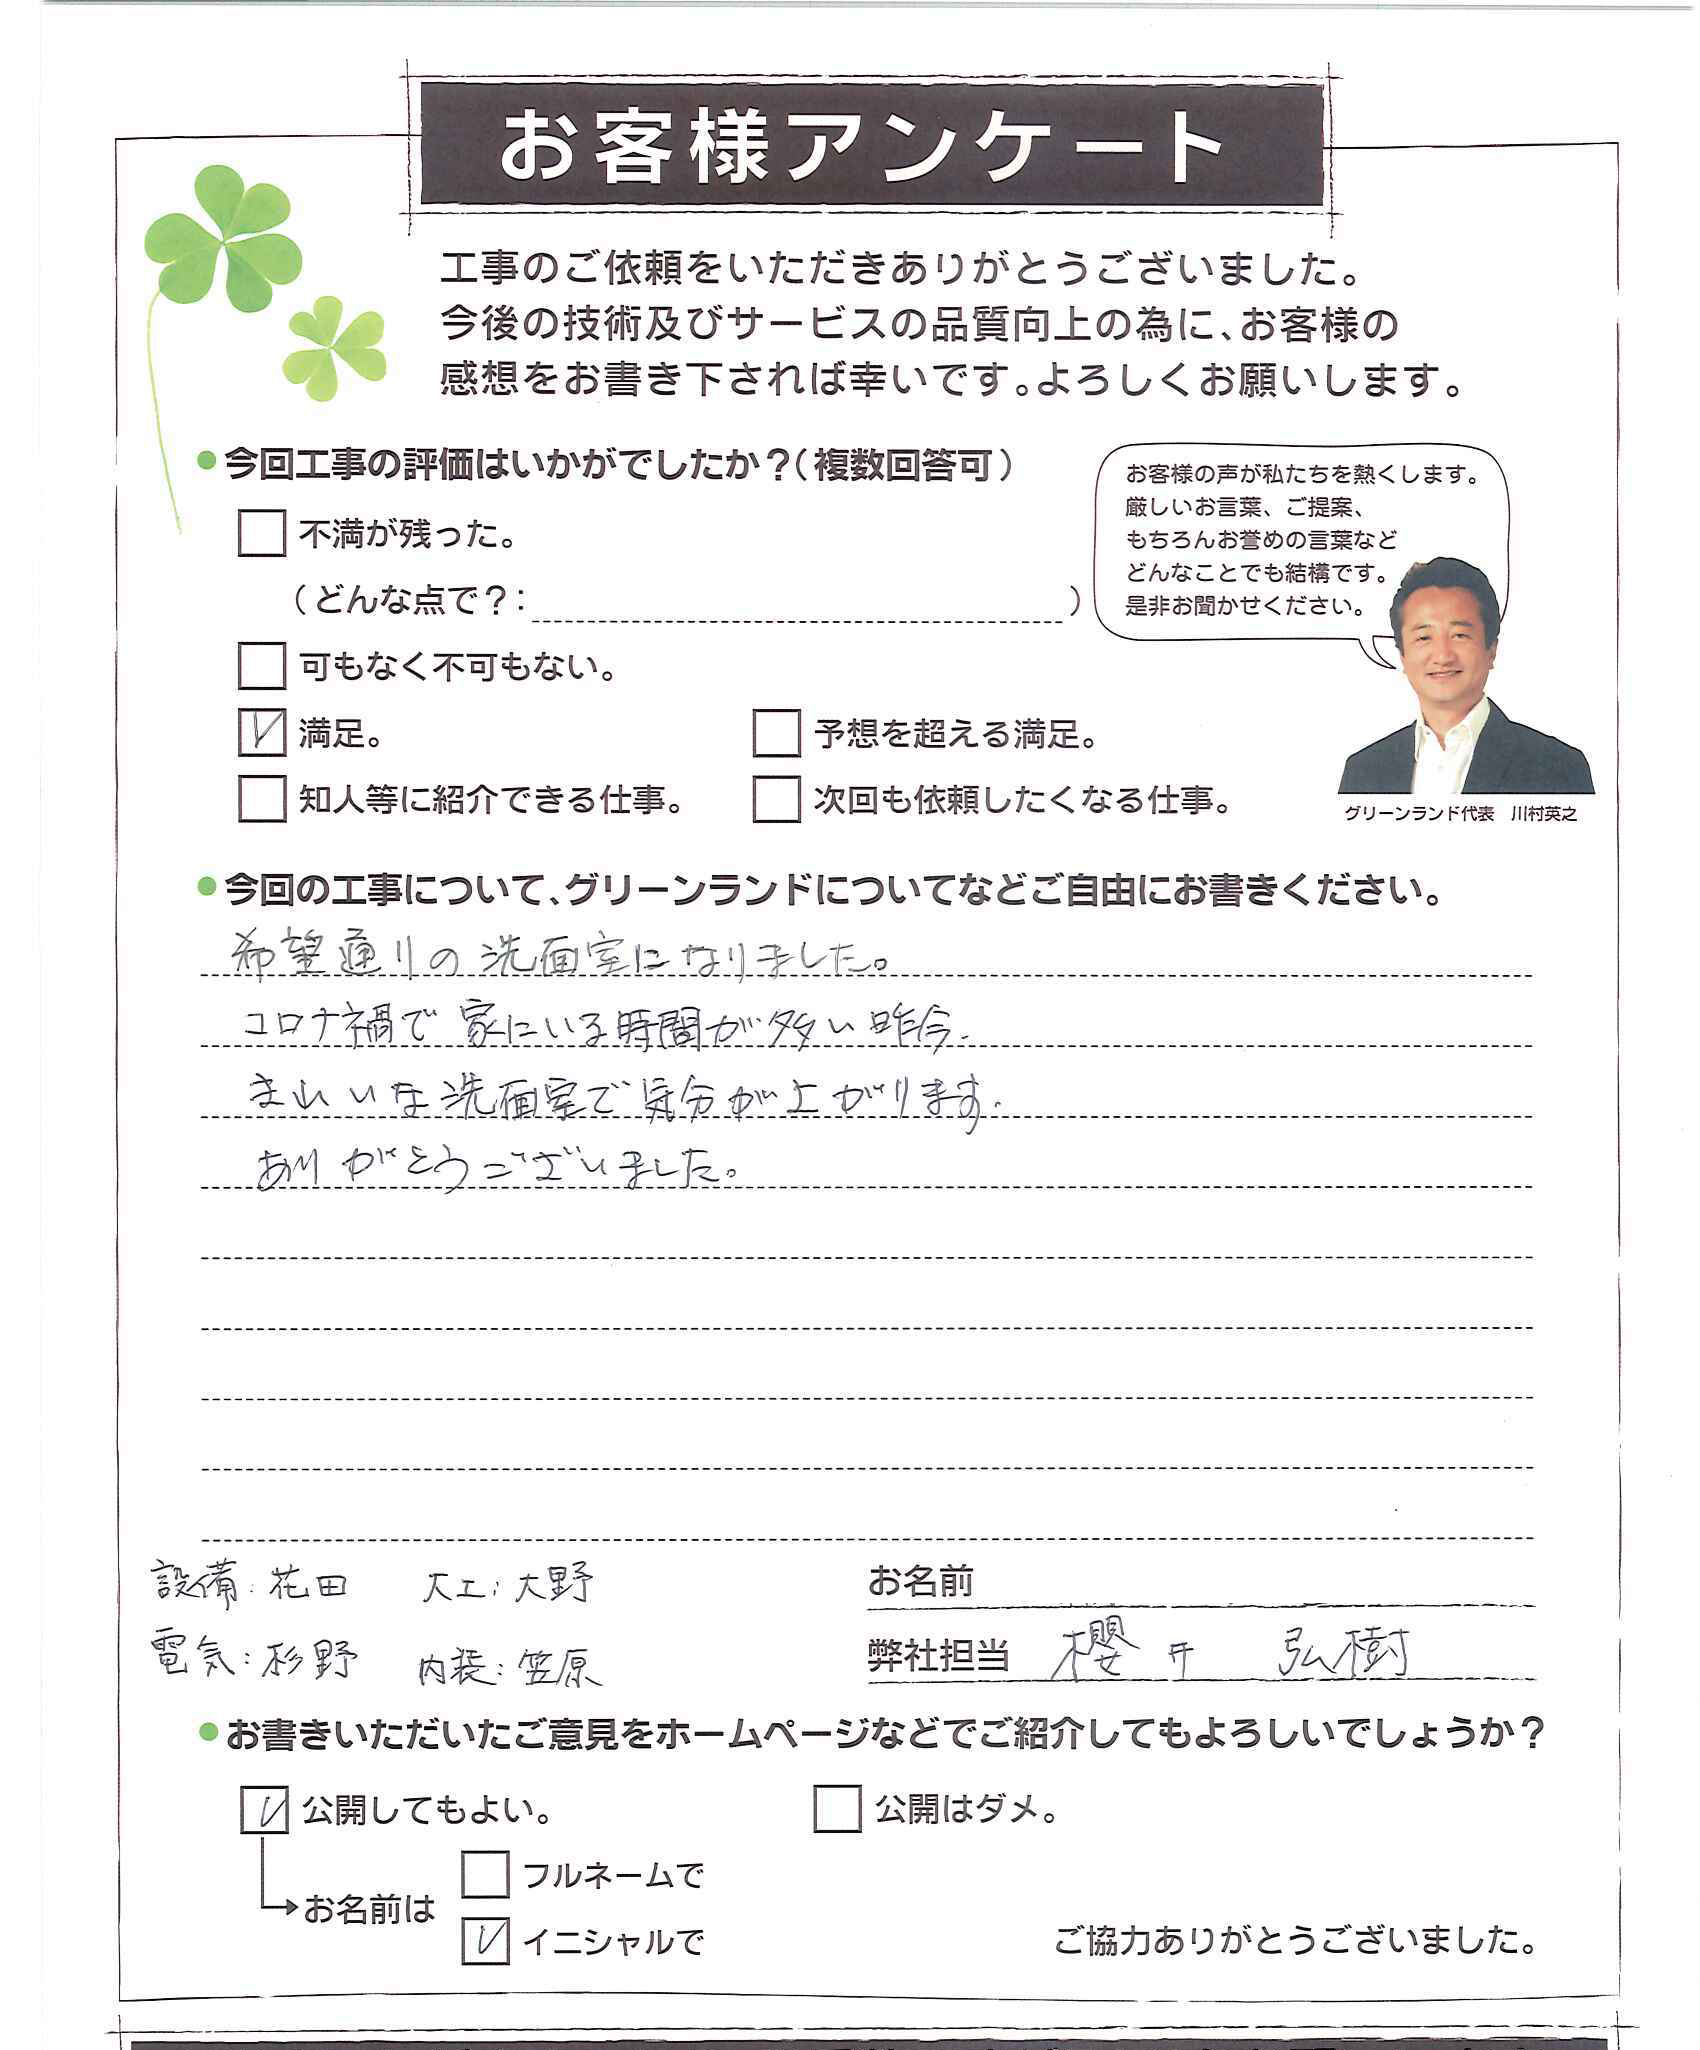 お客様アンケート
工事のご依頼をいただきありがとうございました。
今後の技術及びサービスの品質向上の為に、お客様の
感想をお書き下されば幸いです。よろしくお願いします。
今回工事の評価はいかがでしたか？（複数回答可）
不満が残った。
（どんな点で？：　）
可もなく不可もない。
満足。
予想を超える満足。
知人等に紹介できる仕事。
次回も依頼したくなる仕事。
お客様の声が私たちを熱くします。
厳しいお言葉、ご提案、
もちろんお誉めの言葉など
どんなことでも結構です。
是非お聞かせください。
グリーンランド代表　川村英之
今回の工事について、グリーンランドについてなどご自由にお書きください。
希望通りの洗面室になりました。
コロナ禍で家にいる時間が多い昨今、
きれいな洗面室で気分が上がります。
ありがとうございました。
設備：花田　大工：大野
電気：杉野　内装：笠原
お名前
弊社担当　櫻井　弘樹
お書きいただいたご意見をホームページなどでご紹介してもよろしいでしょうか？
公開してもよい。
公開はダメ。
お名前は
フルネームで
イニシャルで
ご協力ありがとうございました。